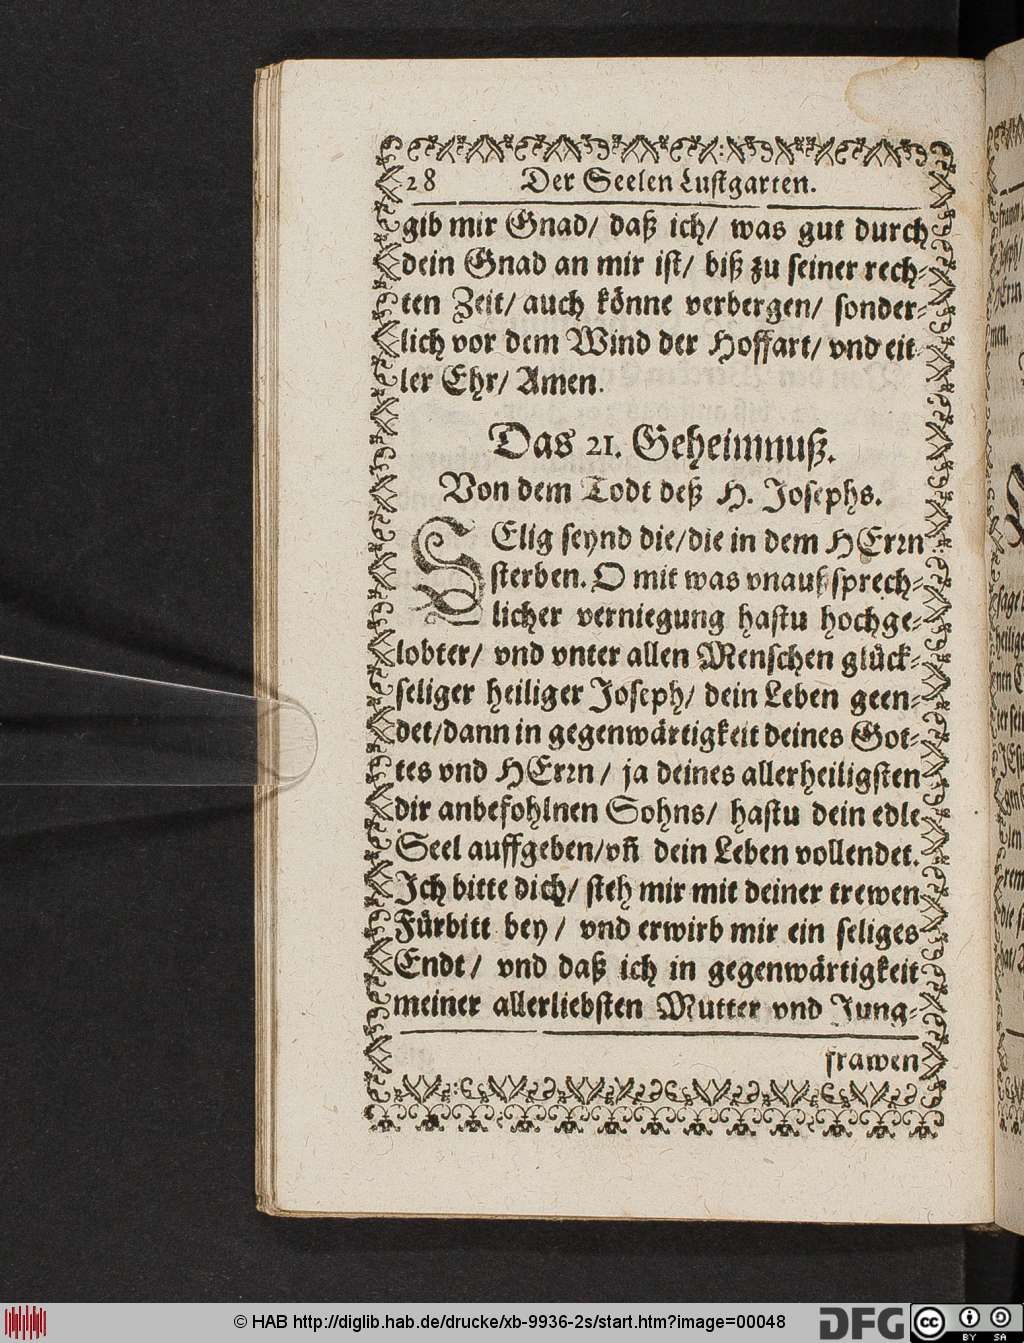 28 Der Seelen Lustgarten.
gib mir Gnad/ daß ich/ was gut durch
dein Gnad an mir ist/ biß zu seiner rech-
ten Zeit/ auch könne verbergen/ sonder-
lich vor dem Wind der Hoffart/ vnd eit-
ler Ehr/ Amen.
Das 21. Geheimnuß.
Von dem Todt deß H. Josephs.
SElig seynd die/die in dem HErrn
sterben. O mit was vnaußsprech-
licher verniegung hastu hochge-
lobter/ vnd vnter allen Menschen glück-
seliger heiliger Joseph/ dein Leben geen-
det/dann in gegenwärtigkeit deines Got-
tes vnd HErrn/ ja deines allerheiligsten
dir anbefohlnen Sohns/ hastu dein edle
Seel auffgeben/vn̄ dein Leben vollendet.
Ich bitte dich/ steh mir mit deiner trewen
Fürbitt bey/ vnd erwirb mir ein seliges
Endt/ vnd daß ich in gegenwärtigkeit
meiner allerliebsten Mutter vnd Jung-
frawen
© HAB http://diglib.hab.de/drucke/xb-9936-2s/start.htm?image=00048
DFG
cc BY SA